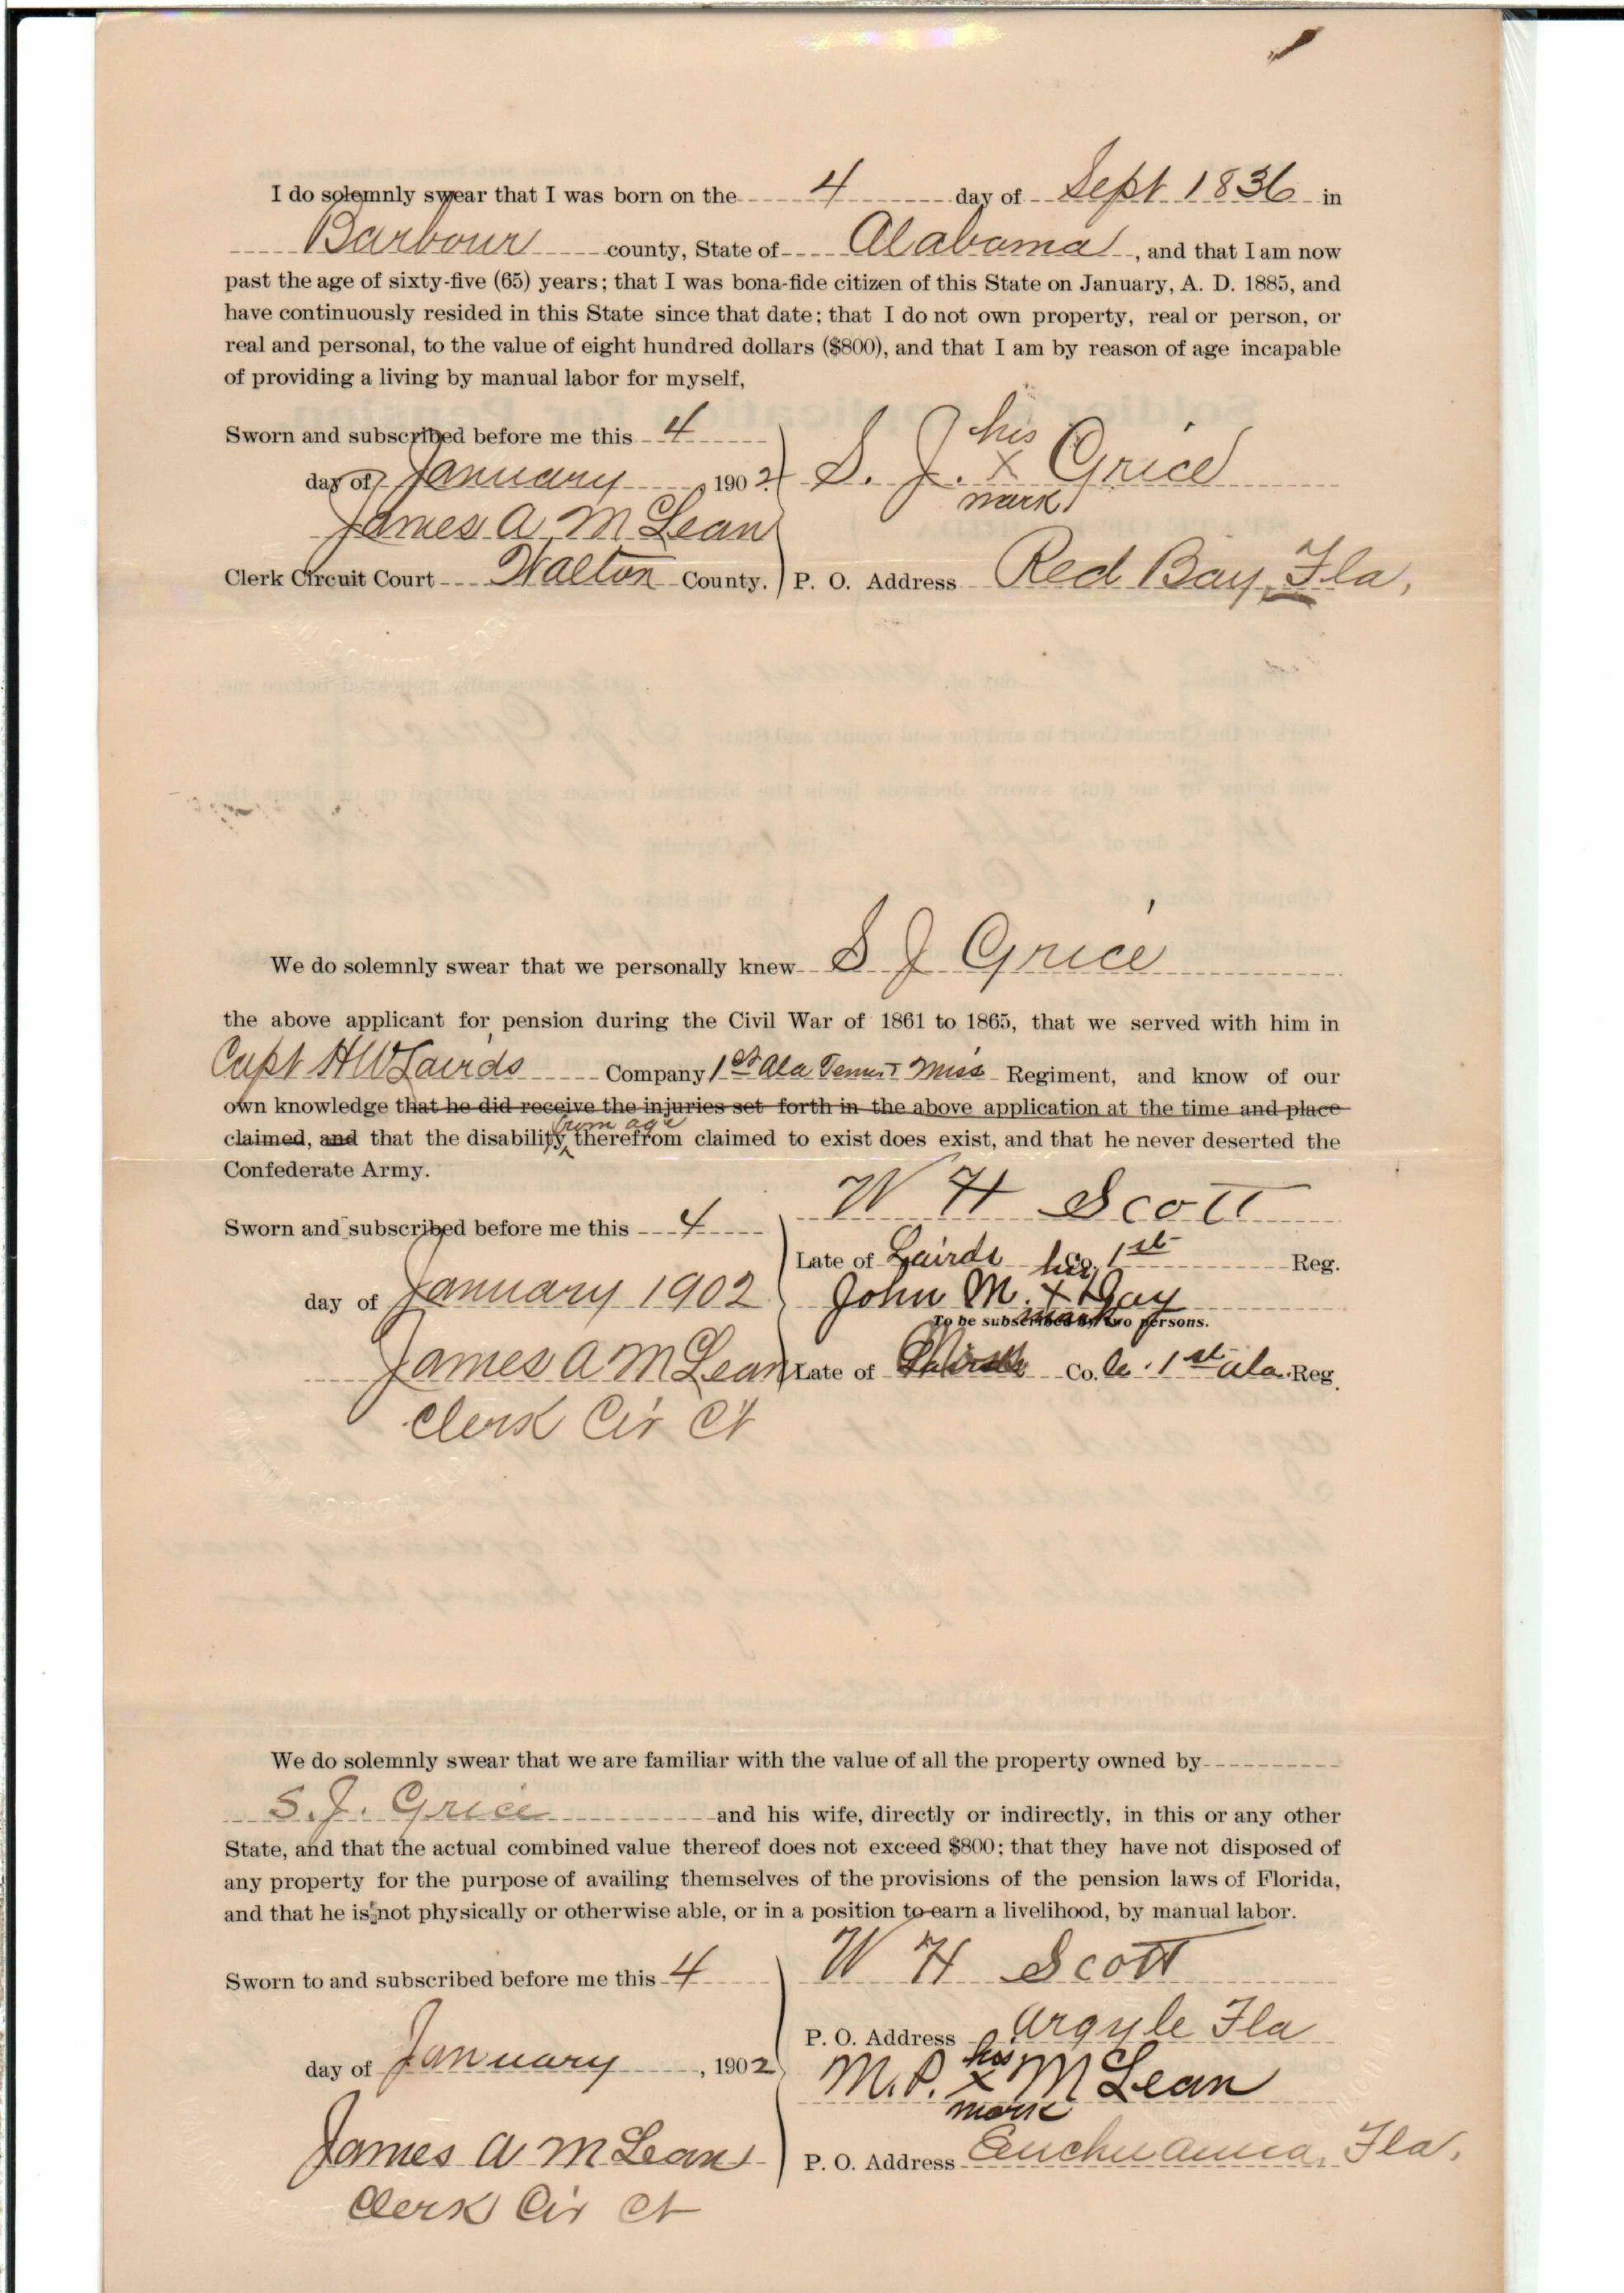 I do solemnly swear that I was born on the 4 day of Sept 1836 in
Barbour county, State of Alabama, and that I am now
past the age of sixty-five (65) years; that I was bona-fide citizen of this State on January, A. D. 1885, and
have continuously resided in this State since that date; that I do not own property, real or person, or
real and personal, to the value of eight hundred dollars ($800), and that I am by reason of age incapable
of providing a living by manual labor for myself,
Sworn and subscribed before me this 4
his
day of January, 1902. S. J. x Grice
mark
James A McLean
Clerk Circuit Court Walton County. P. O. Address Red Bay, Fla,
We do solemnly swear that we personally knew S J Grice
the above applicant for pension during the Civil War of 1861 to 1865, that we served with him in
Capt H W Lairds Company 1st Ala Tenn & Miss Regiment, and know of our
own knowledge that he did receive the injuries set forth in the above application at the time and place
claimed, and that the disability, from age therefrom claimed to exist does exist, and that he never deserted the
Confederate Army.
W H Scott
Sworn and subscribed before me this 4
Late of Lairds Co. 1st Reg.
his
day of January 1902 John M. x Gay
mark
To be subscribed by two persons.
James A McLean Late of Co. 1st Ala. Reg.
Clerk Cir Ct
We do solemnly swear that we are familiar with the value of all the property owned by
S. J. Grice and his wife, directly or indirectly, in this or any other
State, and that the actual combined value thereof does not exceed $800; that they have not disposed of
any property for the purpose of availing themselves of the provisions of the pension laws of Florida,
and that he is not physically or otherwise able, or in a position to earn a livelihood, by manual labor.
Sworn to and subscribed before me this 4 W H Scott
P. O. Address Argyle Fla
his
day of January, 1902 M. P. x McLean
mark
James A McLean P. O. Address Euchu anna, Fla.
Clerk Cir Ct